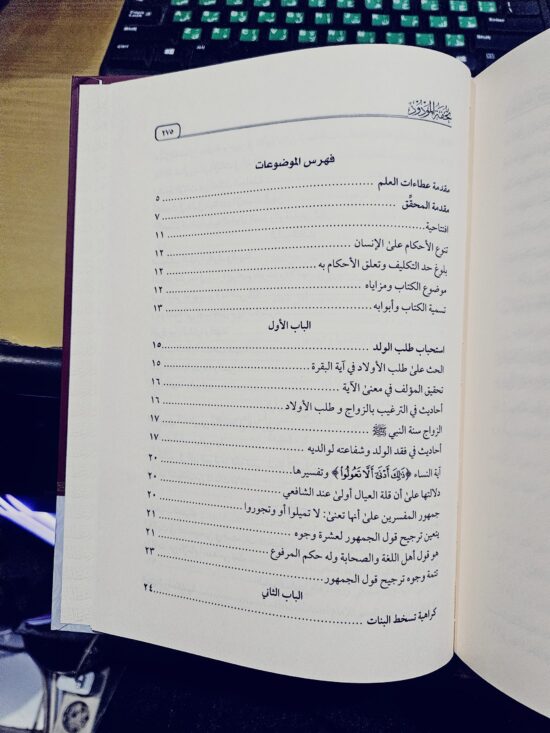 تحفة المودود
٢٧٥
فهرس الموضوعات
مقدمة عطاءات العلم ٥
مقدمة المحقِّق ٧
افتتاحية ١١
تنوع الأحكام علىٰ الإنسان ١٢
بلوغ حد التكليف وتعلق الأحكام به ١٢
موضوع الكتاب ومزاياه ١٢
تسمية الكتاب وأبوابه ١٣
الباب الأول
استحباب طلب الولد ١٥
الحث علىٰ طلب الأولاد في آية البقرة ١٥
تحقيق المؤلف في معنىٰ الآية ١٦
أحاديث في الترغيب بالزواج و طلب الأولاد ١٦
الزواج سنة النبي ﷺ ١٧
أحاديث في فقد الولد وشفاعته لوالديه ١٧
آية النساء ﴿ذَٰلِكَ أَدْنَىٰٓ أَلَّا تَعُولُوا﴾ وتفسيرها ٢٠
دلالتها علىٰ أن قلة العيال أولىٰ عند الشافعي ٢٠
جمهور المفسرين علىٰ أنها تعنىٰ: لا تميلوا أو وتجوروا ٢٠
يتعين ترجيح قول الجمهور لعشرة وجوه ٢١
هو قول أهل اللغة والصحابة وله حكم المرفوع ٢١
تتمة وجوه ترجيح قول الجمهور ٢٣
الباب الثاني
كراهية تسخط البنات ٢٤